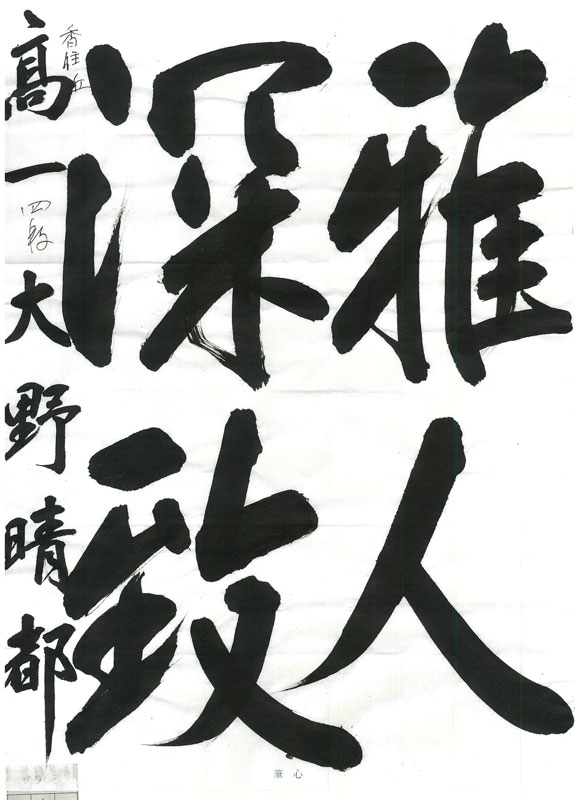 雅人
深致
香住丘
高一 四段 大野晴都
筆心